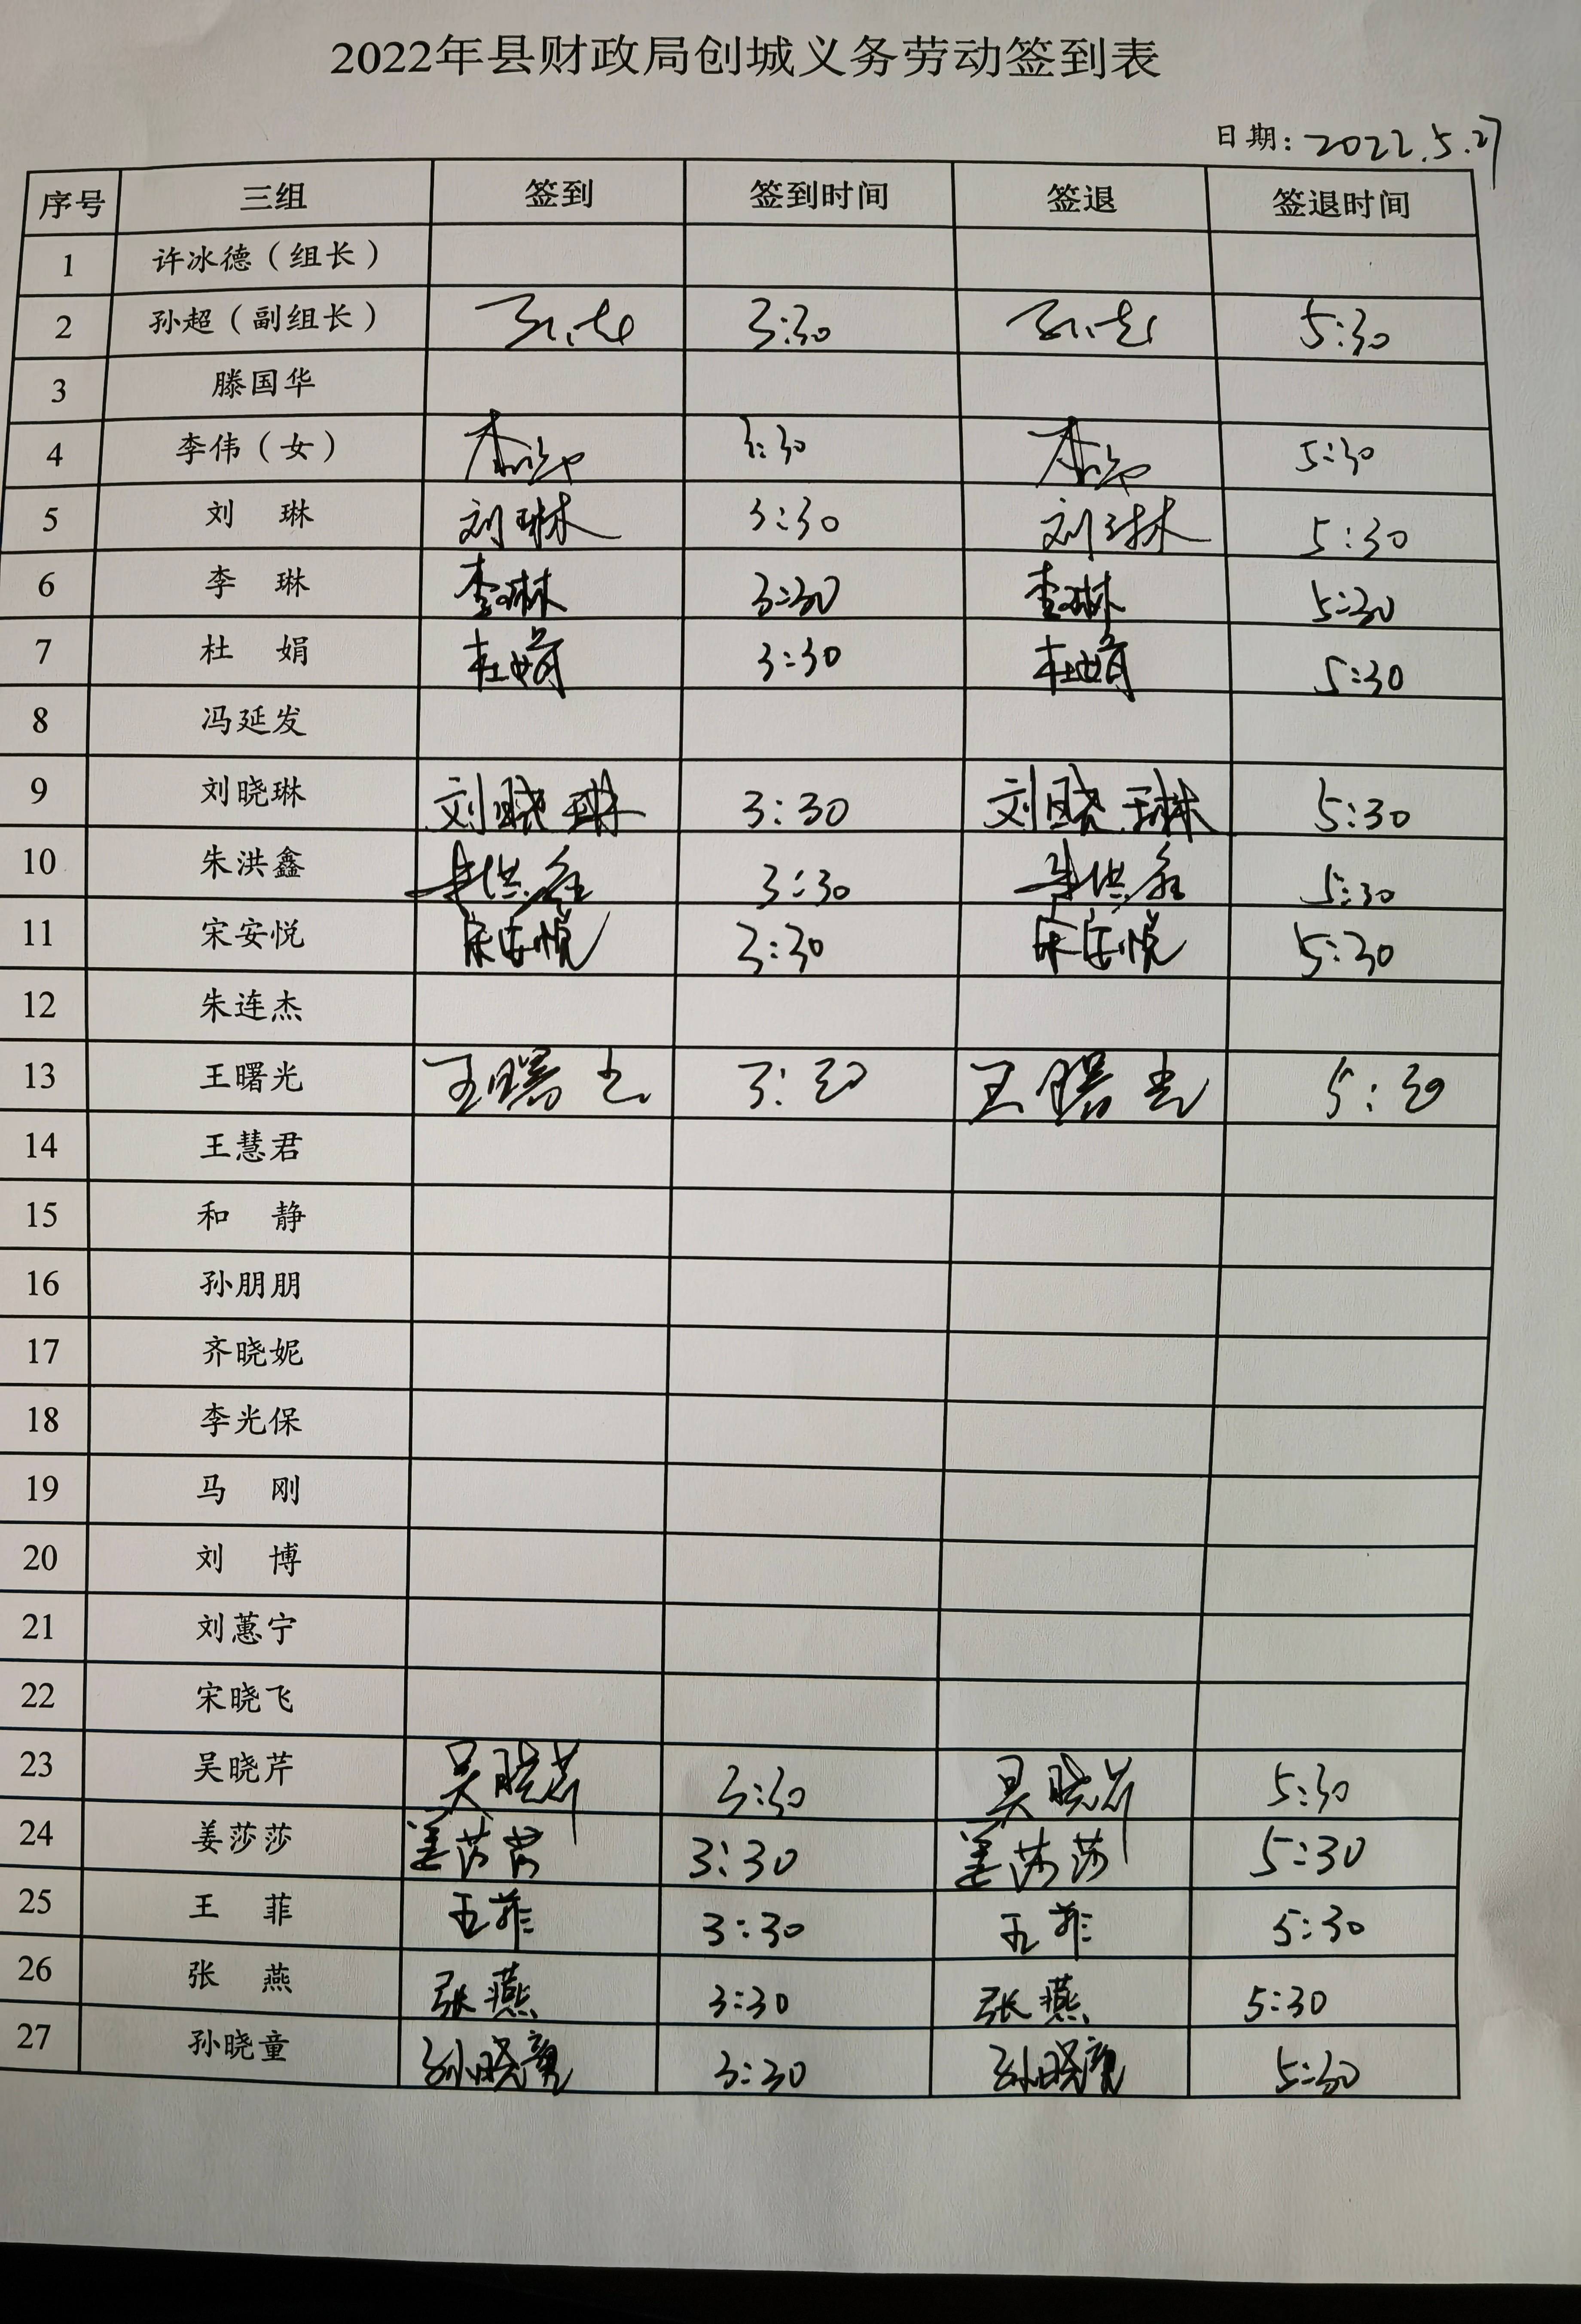 2022年县财政局创城义务劳动签到表
日期: 2022.5.27
序号 三组 签到 签到时间 签退 签退时间
1 许冰德（组长）
2 孙超（副组长） 孙超 3:30 孙超 5:30
3 滕国华
4 李伟（女） 李伟 3:30 李伟 5:30
5 刘 琳 刘琳 3:30 刘琳 5:30
6 李 琳 李琳 3:30 李琳 5:30
7 杜 娟 杜娟 3:30 杜娟 5:30
8 冯延发
9 刘晓琳 刘晓琳 3:30 刘晓琳 5:30
10 朱洪鑫 朱洪鑫 3:30 朱洪鑫 5:30
11 宋安悦 宋安悦 3:30 宋安悦 5:30
12 朱连杰
13 王曙光 王曙光 3:30 王曙光 5:30
14 王慧君
15 和 静
16 孙朋朋
17 齐晓妮
18 李光保
19 马 刚
20 刘 博
21 刘蕙宁
22 宋晓飞
23 吴晓芹 吴晓芹 3:30 吴晓芹 5:30
24 姜莎莎 姜莎莎 3:30 姜莎莎 5:30
25 王 菲 王菲 3:30 王菲 5:30
26 张 燕 张燕 3:30 张燕 5:30
27 孙晓童 孙晓童 3:30 孙晓童 5:30